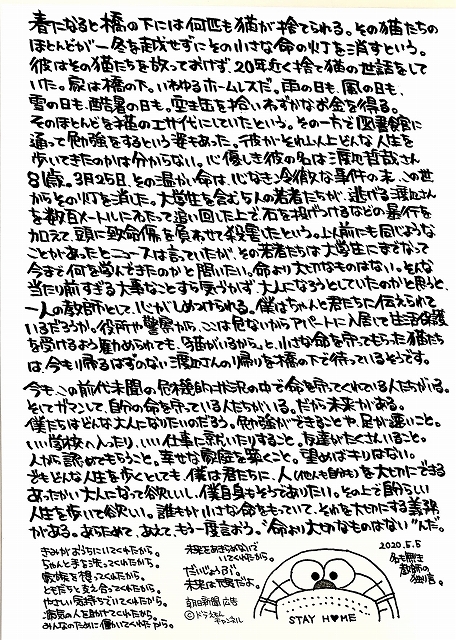 春になると橋の下には何匹も猫が捨てられる。その猫たちの
ほとんどが一冬を越せずにその小さな命の灯を消すという。
彼はその猫たちを放っておけず、20年近く捨て猫の世話をして
いた。家は橋の下。いわゆるホームレスだ。雨の日も、風の日も、
雪の日も、酷暑の日も。空き缶を拾いわずかなお金を得る。
そのほとんどを猫のエサ代にしていたという。その一方で図書館に
通って勉強をするという姿もあった。彼がそれ以上どんな人生を
歩いてきたのかは分からない。心優しき彼の名は渡辺哲哉さん
81歳。3月25日、その温かい命は、心なき冷徹な事件の末、この世
からその灯を消した。大学生を含む5人の若者たちが、逃げる渡辺さん
を数百メートルにわたって追い回した上で石を投げつけるなどの暴行を
加えて、頭に致命傷を負わせて殺害したという。以前にも同じような
ことがあったとニュースは言っていたが、その若者たちは大学生にまでなって
今まで何を学んできたのかと問いたい。命より大切なものはない。そんな
当たり前すぎる大事なことすら気づかず大人になろうとしていたのかと思うと、
一人の教師として、心がしめつけられる。僕はちゃんと君たちに伝えられて
いるだろうか。役所や警察から、ここは危ないからアパートに入居して生活保護
を受けるよう勧められても、“猫がいるから。”と、小さな命を守ってもらった猫たち
は、今も帰るはずのない渡辺さんの帰りを橋の下で待っているそうです。
今も、この前代未聞の危機的状況の中で命を守ってくれている人たちがいる。
そしてガマンして、自分の命を守っている人たちがいる。だから未来がある。
僕たちはどんな大人になりたいのだろう。勉強ができることや、足が速いこと。
いい学校へ入ったり、いい仕事に就いたりすること。友達がたくさんいること。
人から認めてもらうこと。幸せな家庭を築くこと。望めばキリはない。
でもどんな人生を歩くとしても、僕は君たちに、人(他人も自分も)を大切にできる
あったかい大人になって欲しいし、僕自身もそうありたい。その上で自分らしい
人生を歩いて欲しい。誰もが小さな命をもっていて、それを大切にする義務
がある。あらためて、あえて、もう一度言おう。“命より大切なものはない”んだ。
きみがおうちにいてくれたから。
ちゃんと手を洗ってくれたから。
家族を想ってくれたから。
ともだちと支え合ってくれたから。
やさしい気持ちでいてくれたから。
病気の人を助けてくれたから。
みんなのために働いてくれたから。
未来をあきらめないで
いてくれたから。
だいじょうぶ。
未来は元気だよ。
朝日新聞広告
©ドラえもん
チャンネル
STAY H♥ME
2020.5.5
名も無き
教師の
独言。